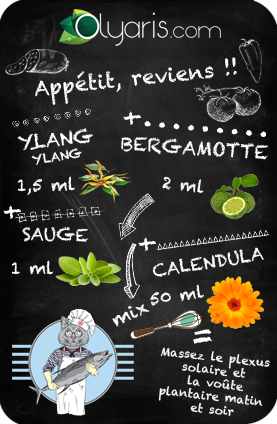 Olyaris.com
Appétit, reviens !!
YLANG
YLANG
1,5 ml
+
BERGAMOTTE
2 ml
+
SAUGE
1 ml
+
CALENDULA
50 ml
mix
=
Massez le plexus
solaire et
la voûte
plantaire matin
et soir